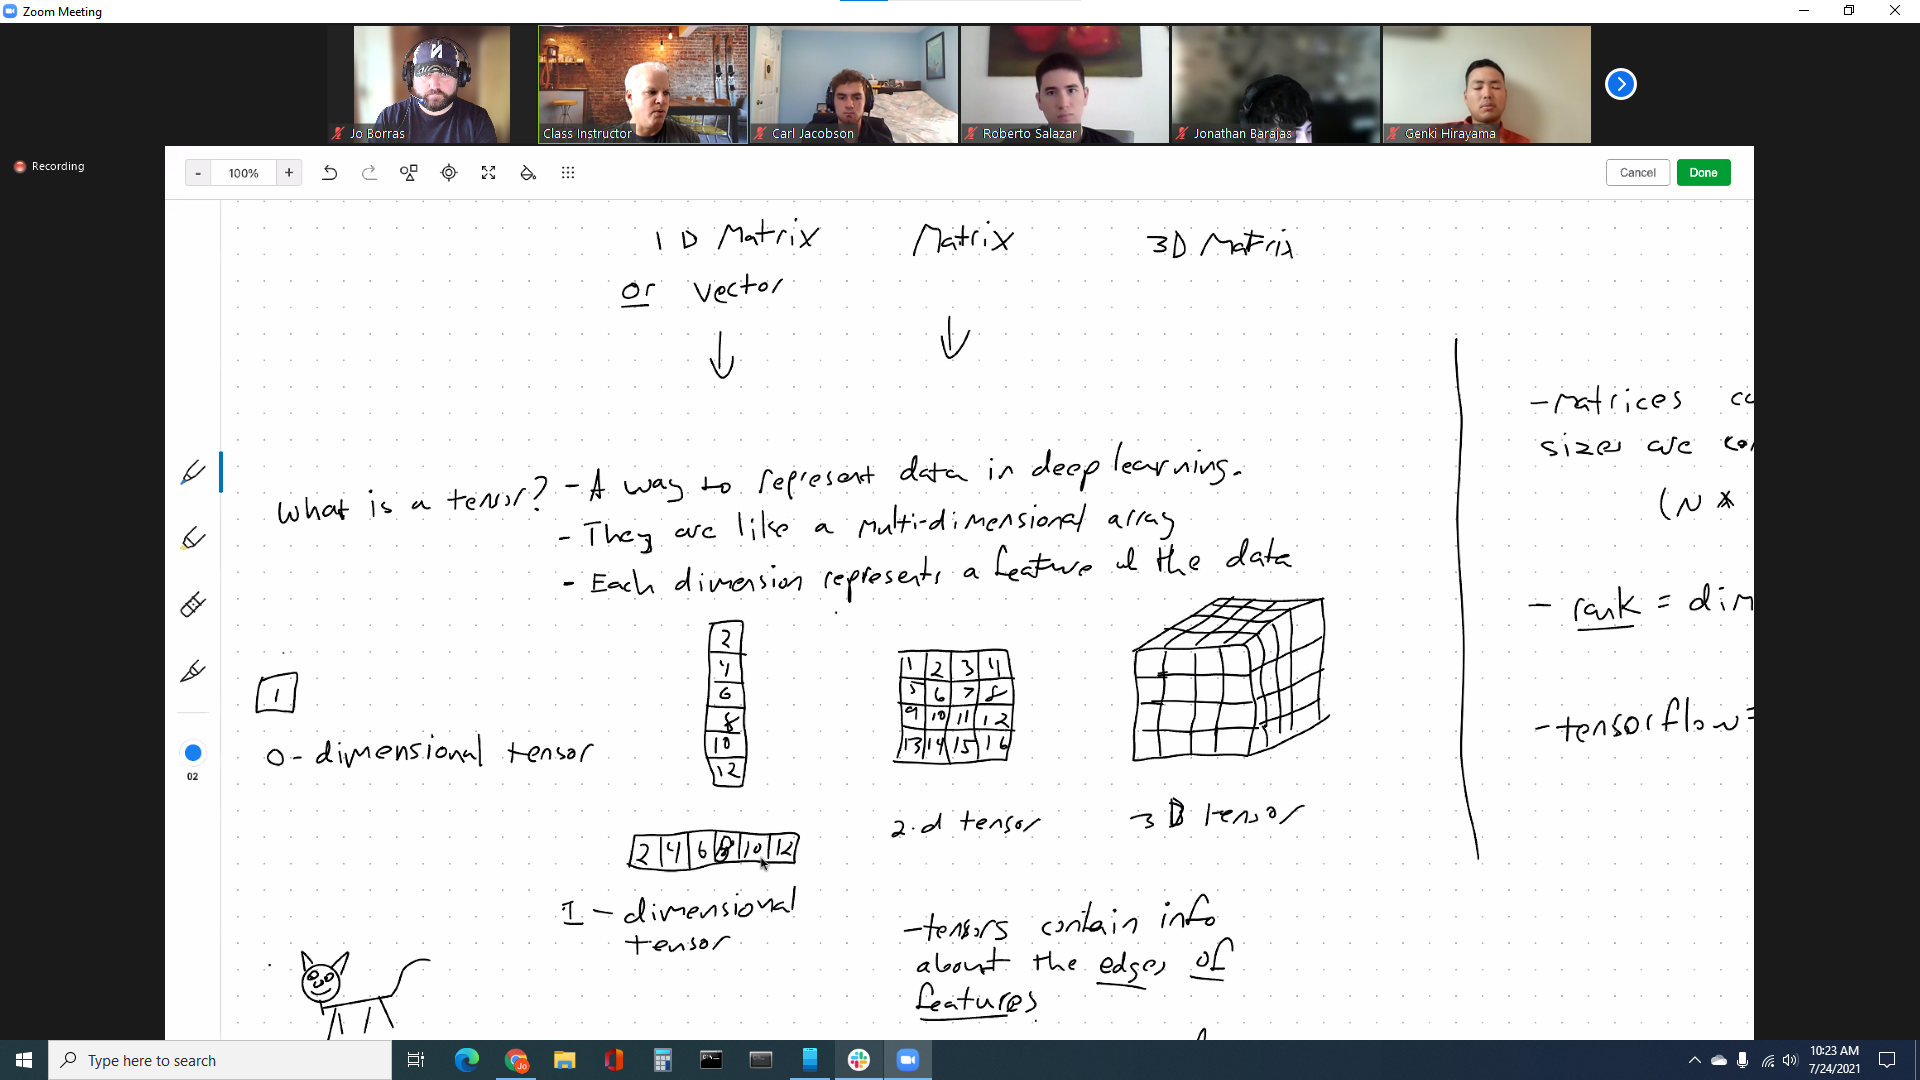 Zoom Meeting
Jo Borras
Class Instructor
Carl Jacobson
Roberto Salazar
Jonathan Barajas
Genki Hirayama
Recording
- 100% +
Cancel
Done
1 D Matrix
or vector
Matrix
3D Matrix
What is a tensor?
- A way to represent data in deep learning.
- They are like a multi-dimensional array
- Each dimension represents a feature of the data
1
0 - dimensional tensor
2
4
6
8
10
12
2 4 6 8 10 12
1 - dimensional
tensor
1 2 3 4
5 6 7 8
9 10 11 12
13 14 15 16
2-d tensor
3D tensor
- tensors contain info
about the edges of
features
- matrices
sizes are
(N *
- rank = dim
- tensorflow =
02
Type here to search
10:23 AM
7/24/2021